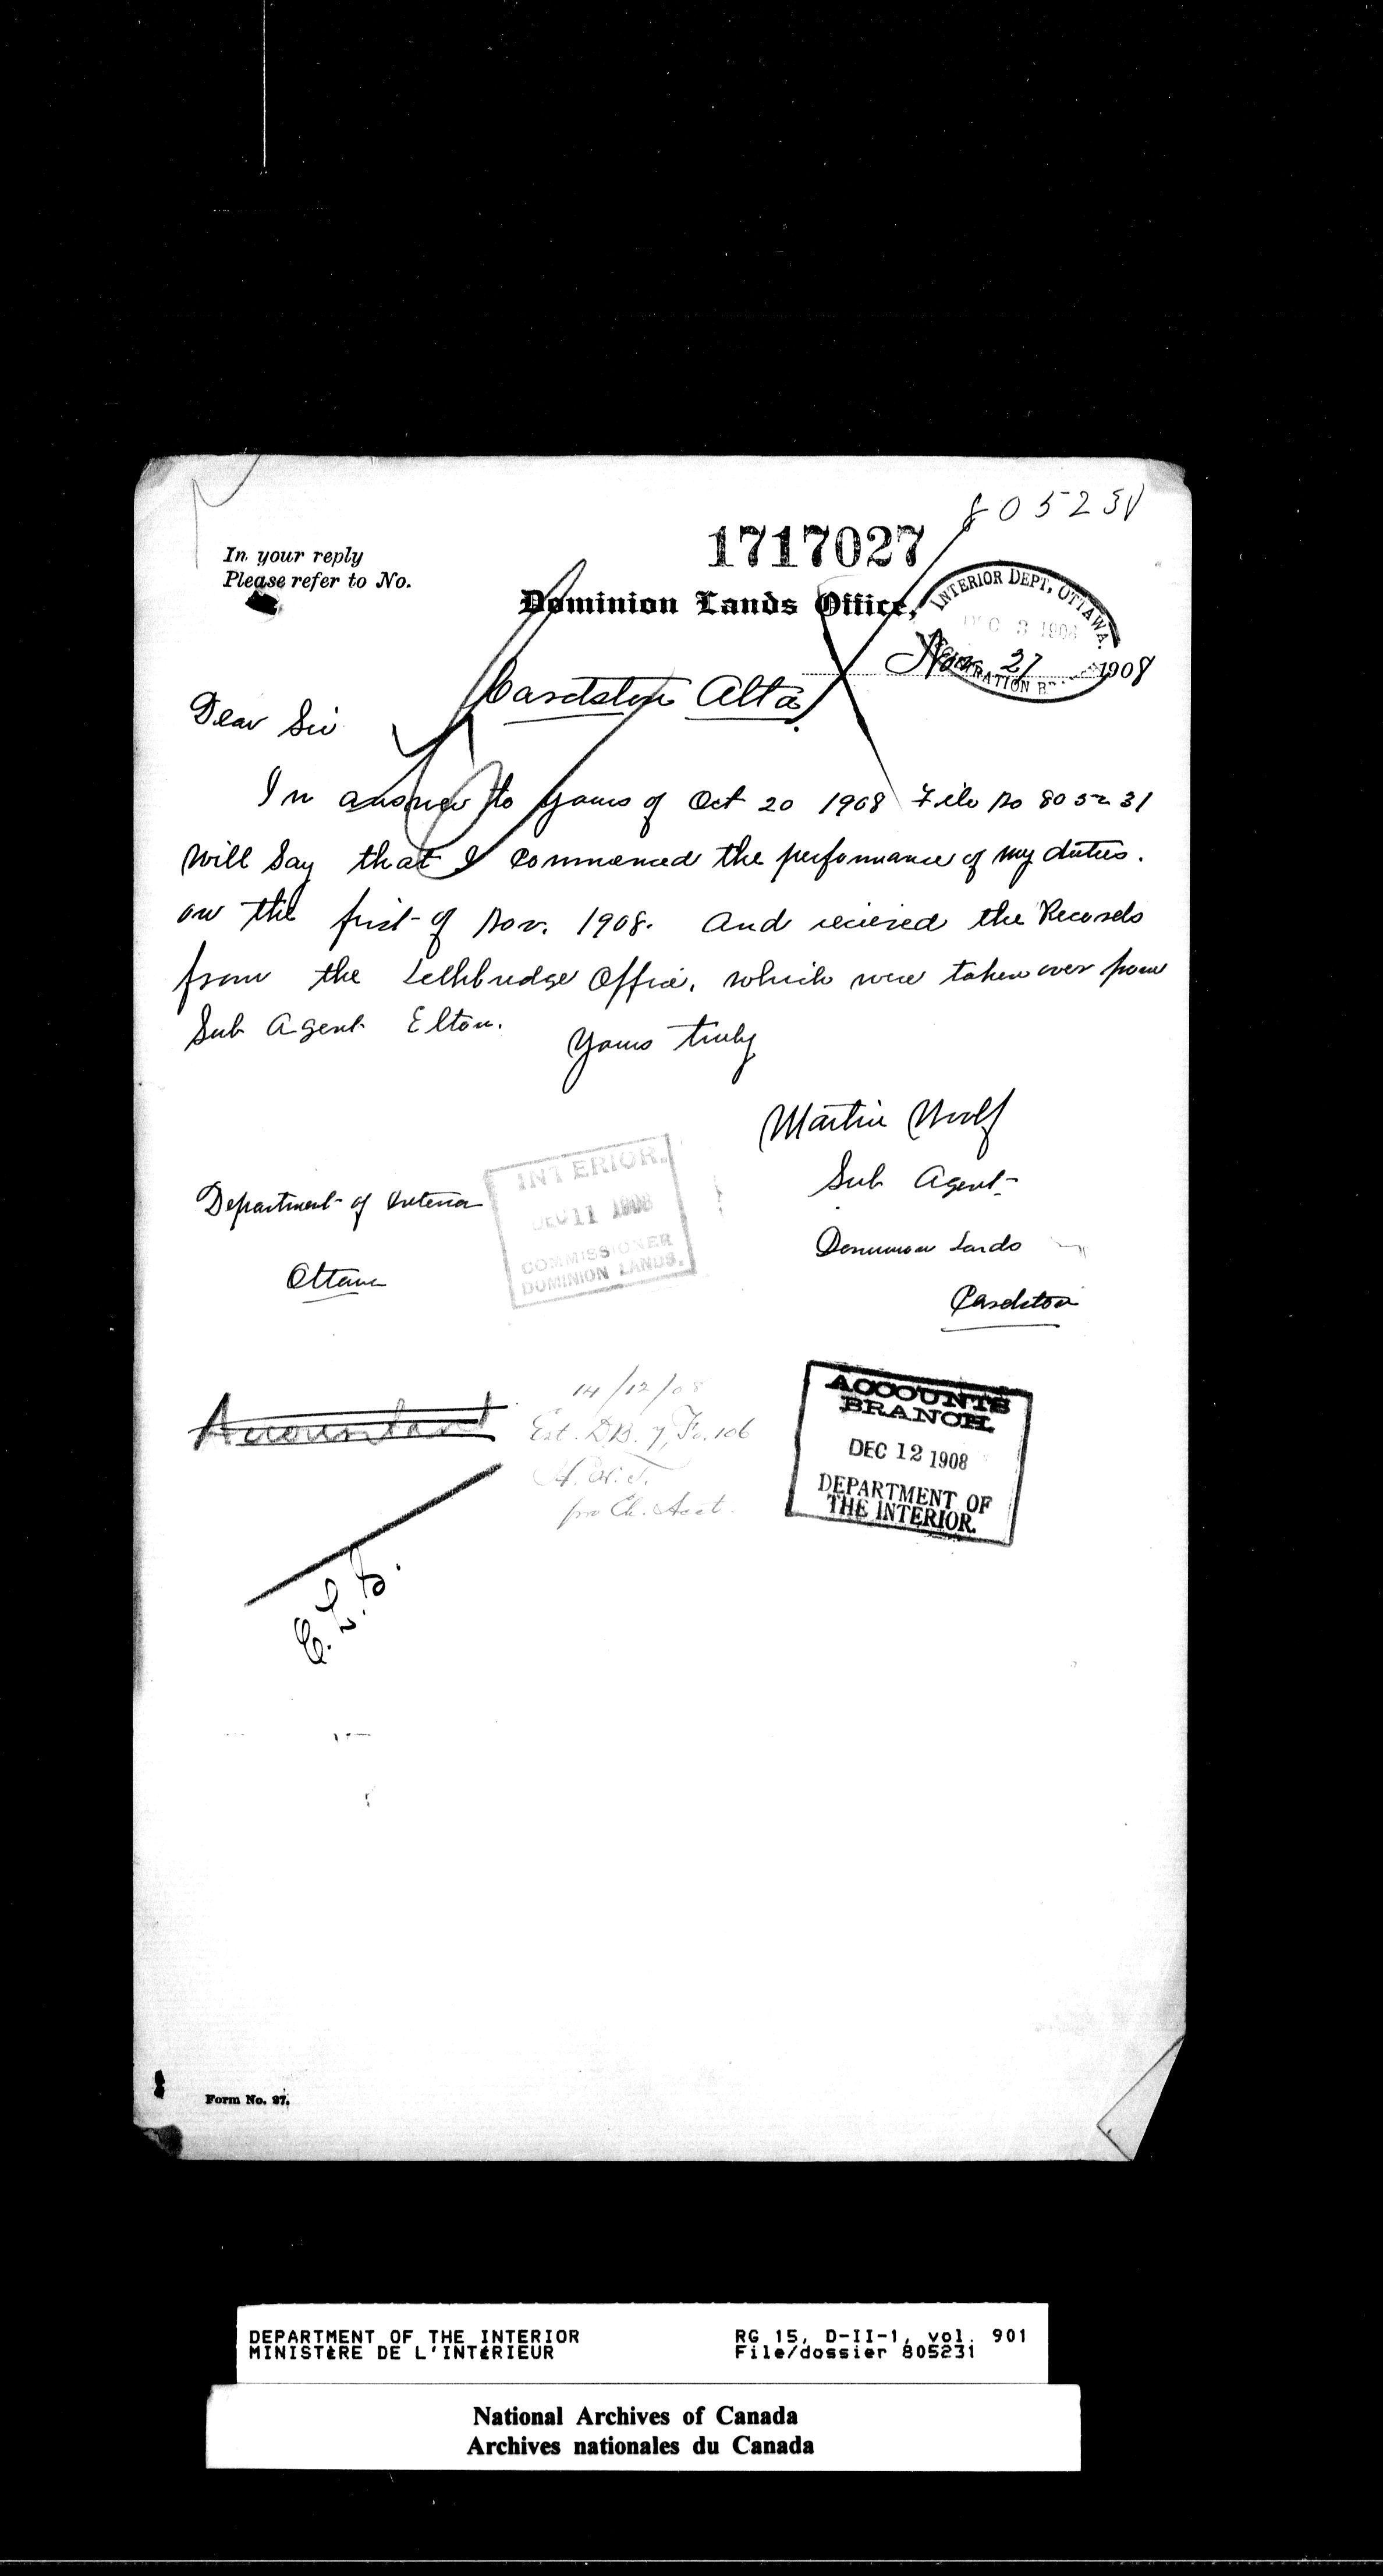 805231
1717027
In your reply
Please refer to No.
Dominion Lands Office,
INTERIOR DEPT, OTTAWA.
DEC 3 1908
REGISTRATION BRANCH
Nov 27 1908
Cardston Alta.
Dear Sir
In answer to yours of Oct 20 1908 File No 805231
Will Say that I Commenced the performance of my duties.
on the first of Nov. 1908. And recieved the Records
from the Lethbridge Office, which were taken over from
Sub Agent Elton.
Yours truly
Martin Woolf
Sub Agent
Dominion Lands
Cardston
Department of Interior
Ottawa
INTERIOR.
DEC 11 1908
COMMISSIONER
DOMINION LANDS.
Accountant
14/12/08
Ext. D.B. 7, Fo. 106
pro Ch. Acct.
ACCOUNTS
BRANCH.
DEC 12 1908
DEPARTMENT OF
THE INTERIOR.
Form No. 27.
DEPARTMENT OF THE INTERIOR
MINISTÈRE DE L'INTÉRIEUR
RG 15, D-II-1, vol. 901
File/dossier 805231
National Archives of Canada
Archives nationales du Canada